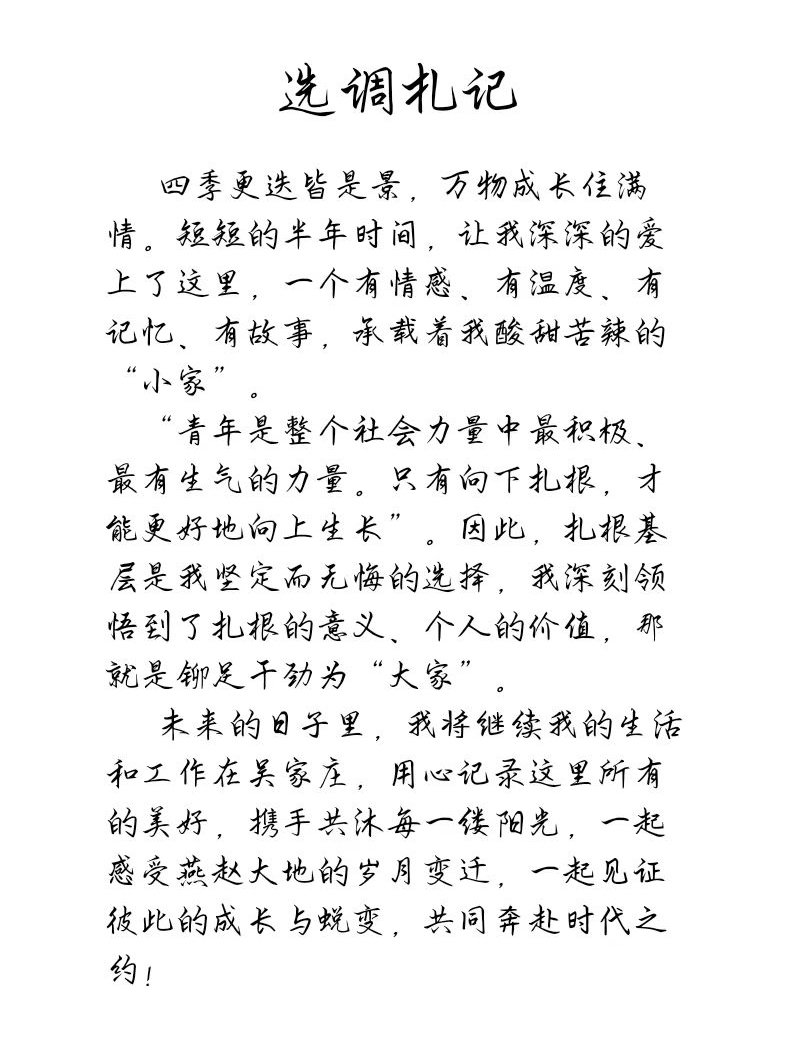 选调札记
四季更迭皆是景，万物成长住满
情。短短的半年时间，让我深深的爱
上了这里，一个有情感、有温度、有
记忆、有故事，承载着我酸甜苦辣的
“小家”。
“青年是整个社会力量中最积极、
最有生气的力量。只有向下扎根，才
能更好地向上生长”。因此，扎根基
层是我坚定而无悔的选择，我深刻领
悟到了扎根的意义、个人的价值，那
就是铆足干劲为“大家”。
未来的日子里，我将继续我的生活
和工作在吴家庄，用心记录这里所有
的美好，携手共沐每一缕阳光，一起
感受燕赵大地的岁月变迁，一起见证
彼此的成长与蜕变，共同奔赴时代之
约！